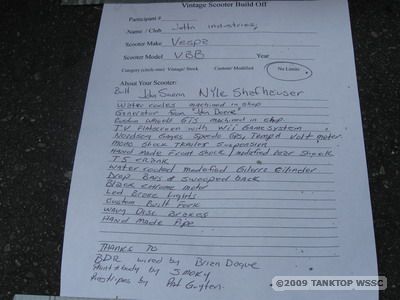 Vintage Scooter Build Off
Participant #
Name / Club Jetta industries,
Scooter Make Vespa
Scooter Model VBB Year
Category (circle one) Vintage/ Stock Custom/ Modified No Limits
About Your Scooter:
Built John Nyle Shefhauser
Water cooled machined in shop
Generator from "John Deere"
machined in shop
T.V Flatscreen with Wii Game System
Gauges Speedo GPS, Temp & Volt meter
Mono Shock Trailer Suspension
Hand Made Front Shock / modefied Rear Shock
T.5 crank
Water cooled modefied Gilera Cilinder
Drop Bars & Sweeped back
Black Extreme motor
Led Brake Lights
Custom Built Fork
Wavy Disc Brakes
Hand Made Pipe
THANKS TO
BDR wired by Brian Dogue
Paint & body by SMOKY
Pinstripes by Pat Guyten.
©2009 TANKTOP WSSC